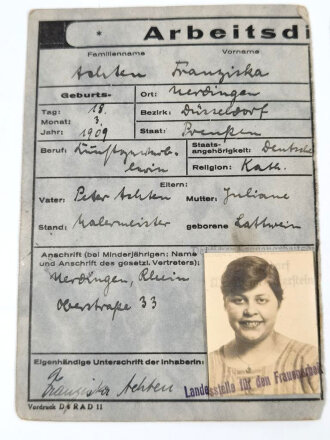 * Arbeitsdi
Familienname Vorname
Achten Franziska
Geburts- Ort: Uerdingen
Tag: 18. Bezirk: Düsseldorf
Monat: 3.
Jahr: 1909 Staat: Preußen
Beruf: Staats-
angehörigkeit: Deutsche
Religion: Kath.
Eltern:
Vater: Peter Achten Mutter: Juliane
Stand: Malermeister geborene Lattwein
Anschrift (bei Minderjährigen: Name
und Anschrift des gesetzl. Vertreters):
Uerdingen, Rhein
Oberstraße 33
Eigenhändige Unterschrift der Inhaberin:
Franziska Achten
Landesstelle für den Frauenarbeit
Vordruck D 6 RAD II